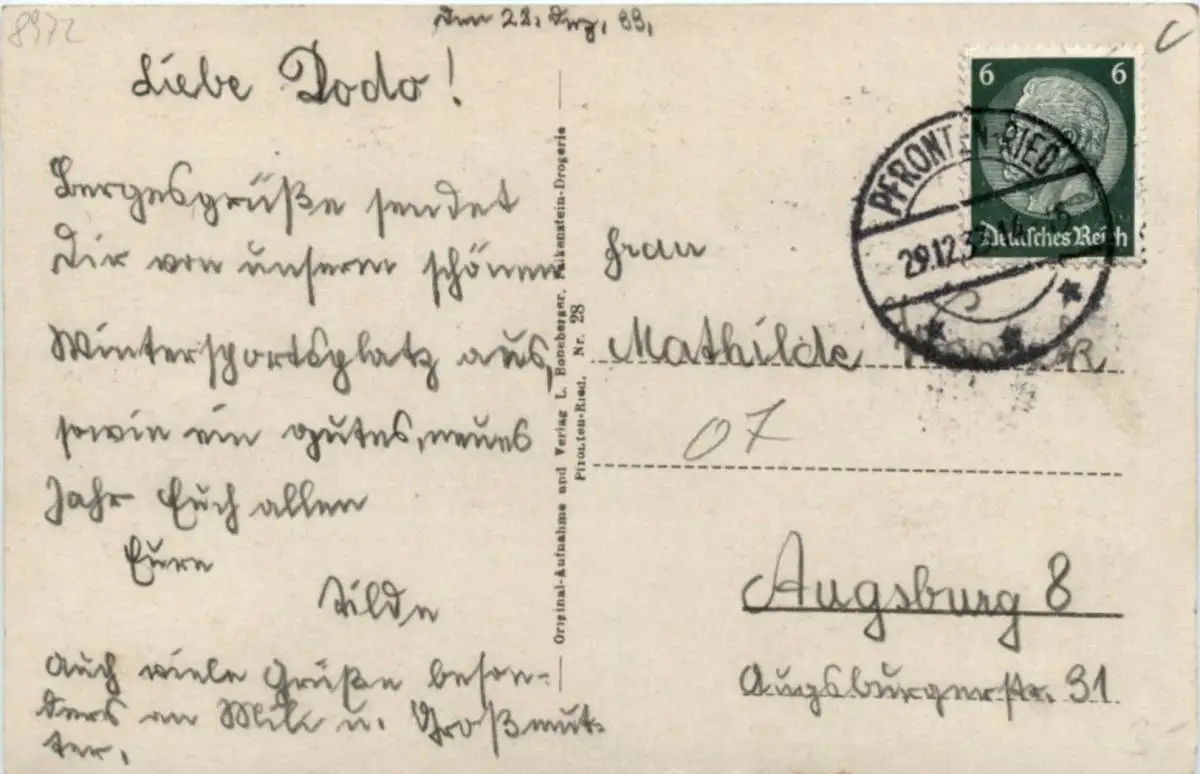 8972
Den 28. Dez. 39.
Liebe Dodo!
Bergesgrüße sendet
Dir von unserm schönen
Wintersportsplatz aus,
sowie ein gutes, neues
Jahr Euch allen
Eure
Tilde
Auch viele Grüße beson-
ders an Mili u. Großmut-
ter.
Original-Aufnahme und Verlag L. Boneberger, Falkenstein-Drogerie
Pfronten-Ried. Nr. 28
6 6
Deutsches Reich
PFRONTEN-RIED
29.12.3
Frau
Mathilde
07
Augsburg 8
Augsburgerstr. 31